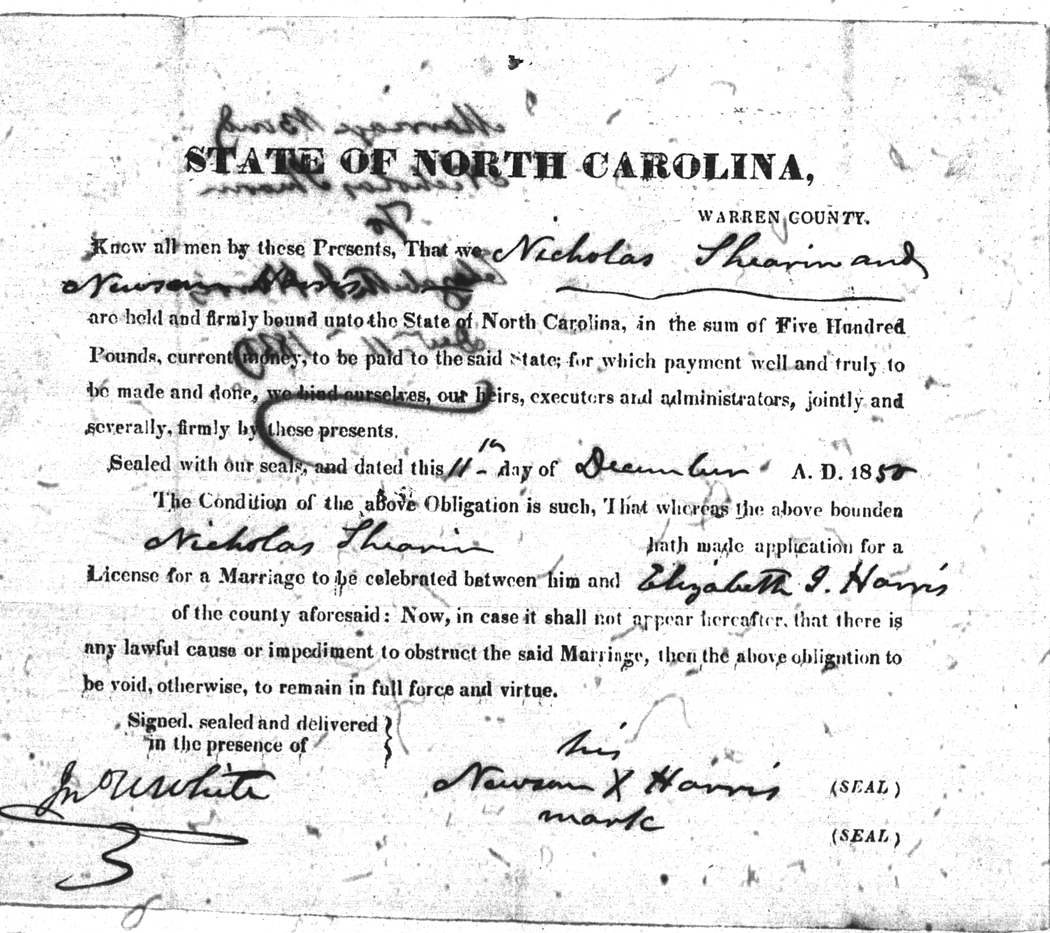 STATE OF NORTH CAROLINA,
WARREN COUNTY.
Know all men by these Presents, That we Nicholas Shearin and
Newsom Harris
are held and firmly bound unto the State of North Carolina, in the sum of Five Hundred
Pounds, current money, to be paid to the said State; for which payment well and truly to
be made and done, we bind ourselves, our heirs, executors and administrators, jointly and
severally, firmly by these presents.
Sealed with our seals, and dated this 11th day of December A. D. 1850
The Condition of the above Obligation is such, That whereas the above bounden
Nicholas Shearin hath made application for a
License for a Marriage to be celebrated between him and Elizabeth J. Harris
of the county aforesaid: Now, in case it shall not appear hereafter, that there is
any lawful cause or impediment to obstruct the said Marriage, then the above obligation to
be void, otherwise, to remain in full force and virtue.
Signed, sealed and delivered }
in the presence of
his
Jno W White Newsom X Harris (SEAL)
mark
(SEAL)